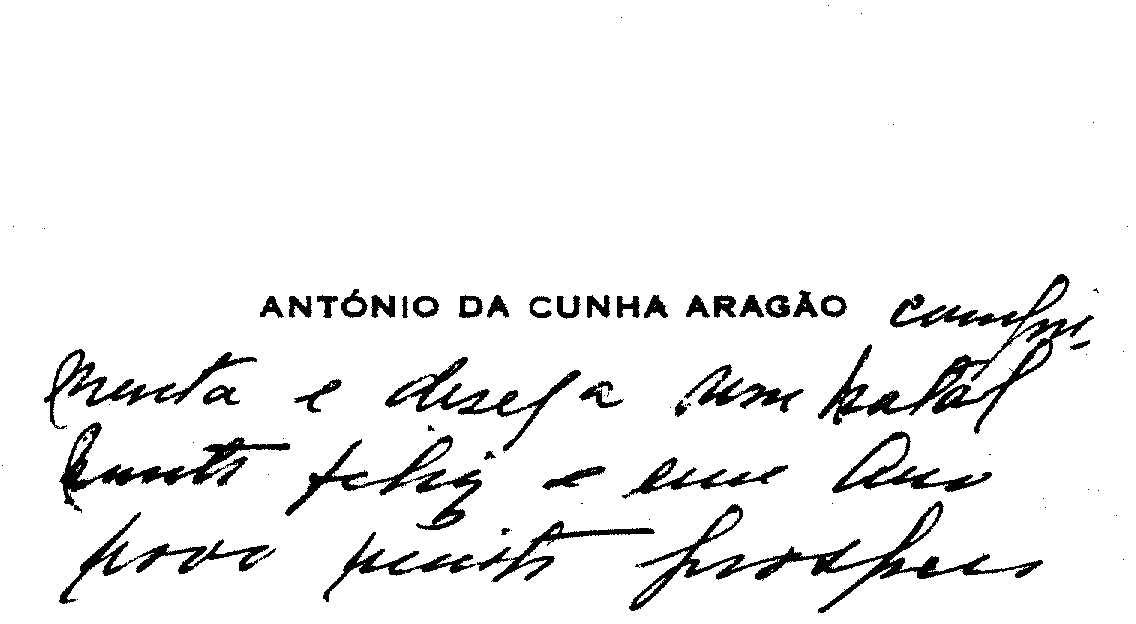 ANTÓNIO DA CUNHA ARAGÃO cumpri-
menta e deseja um Natal
muito feliz e um Ano
novo muito prospero